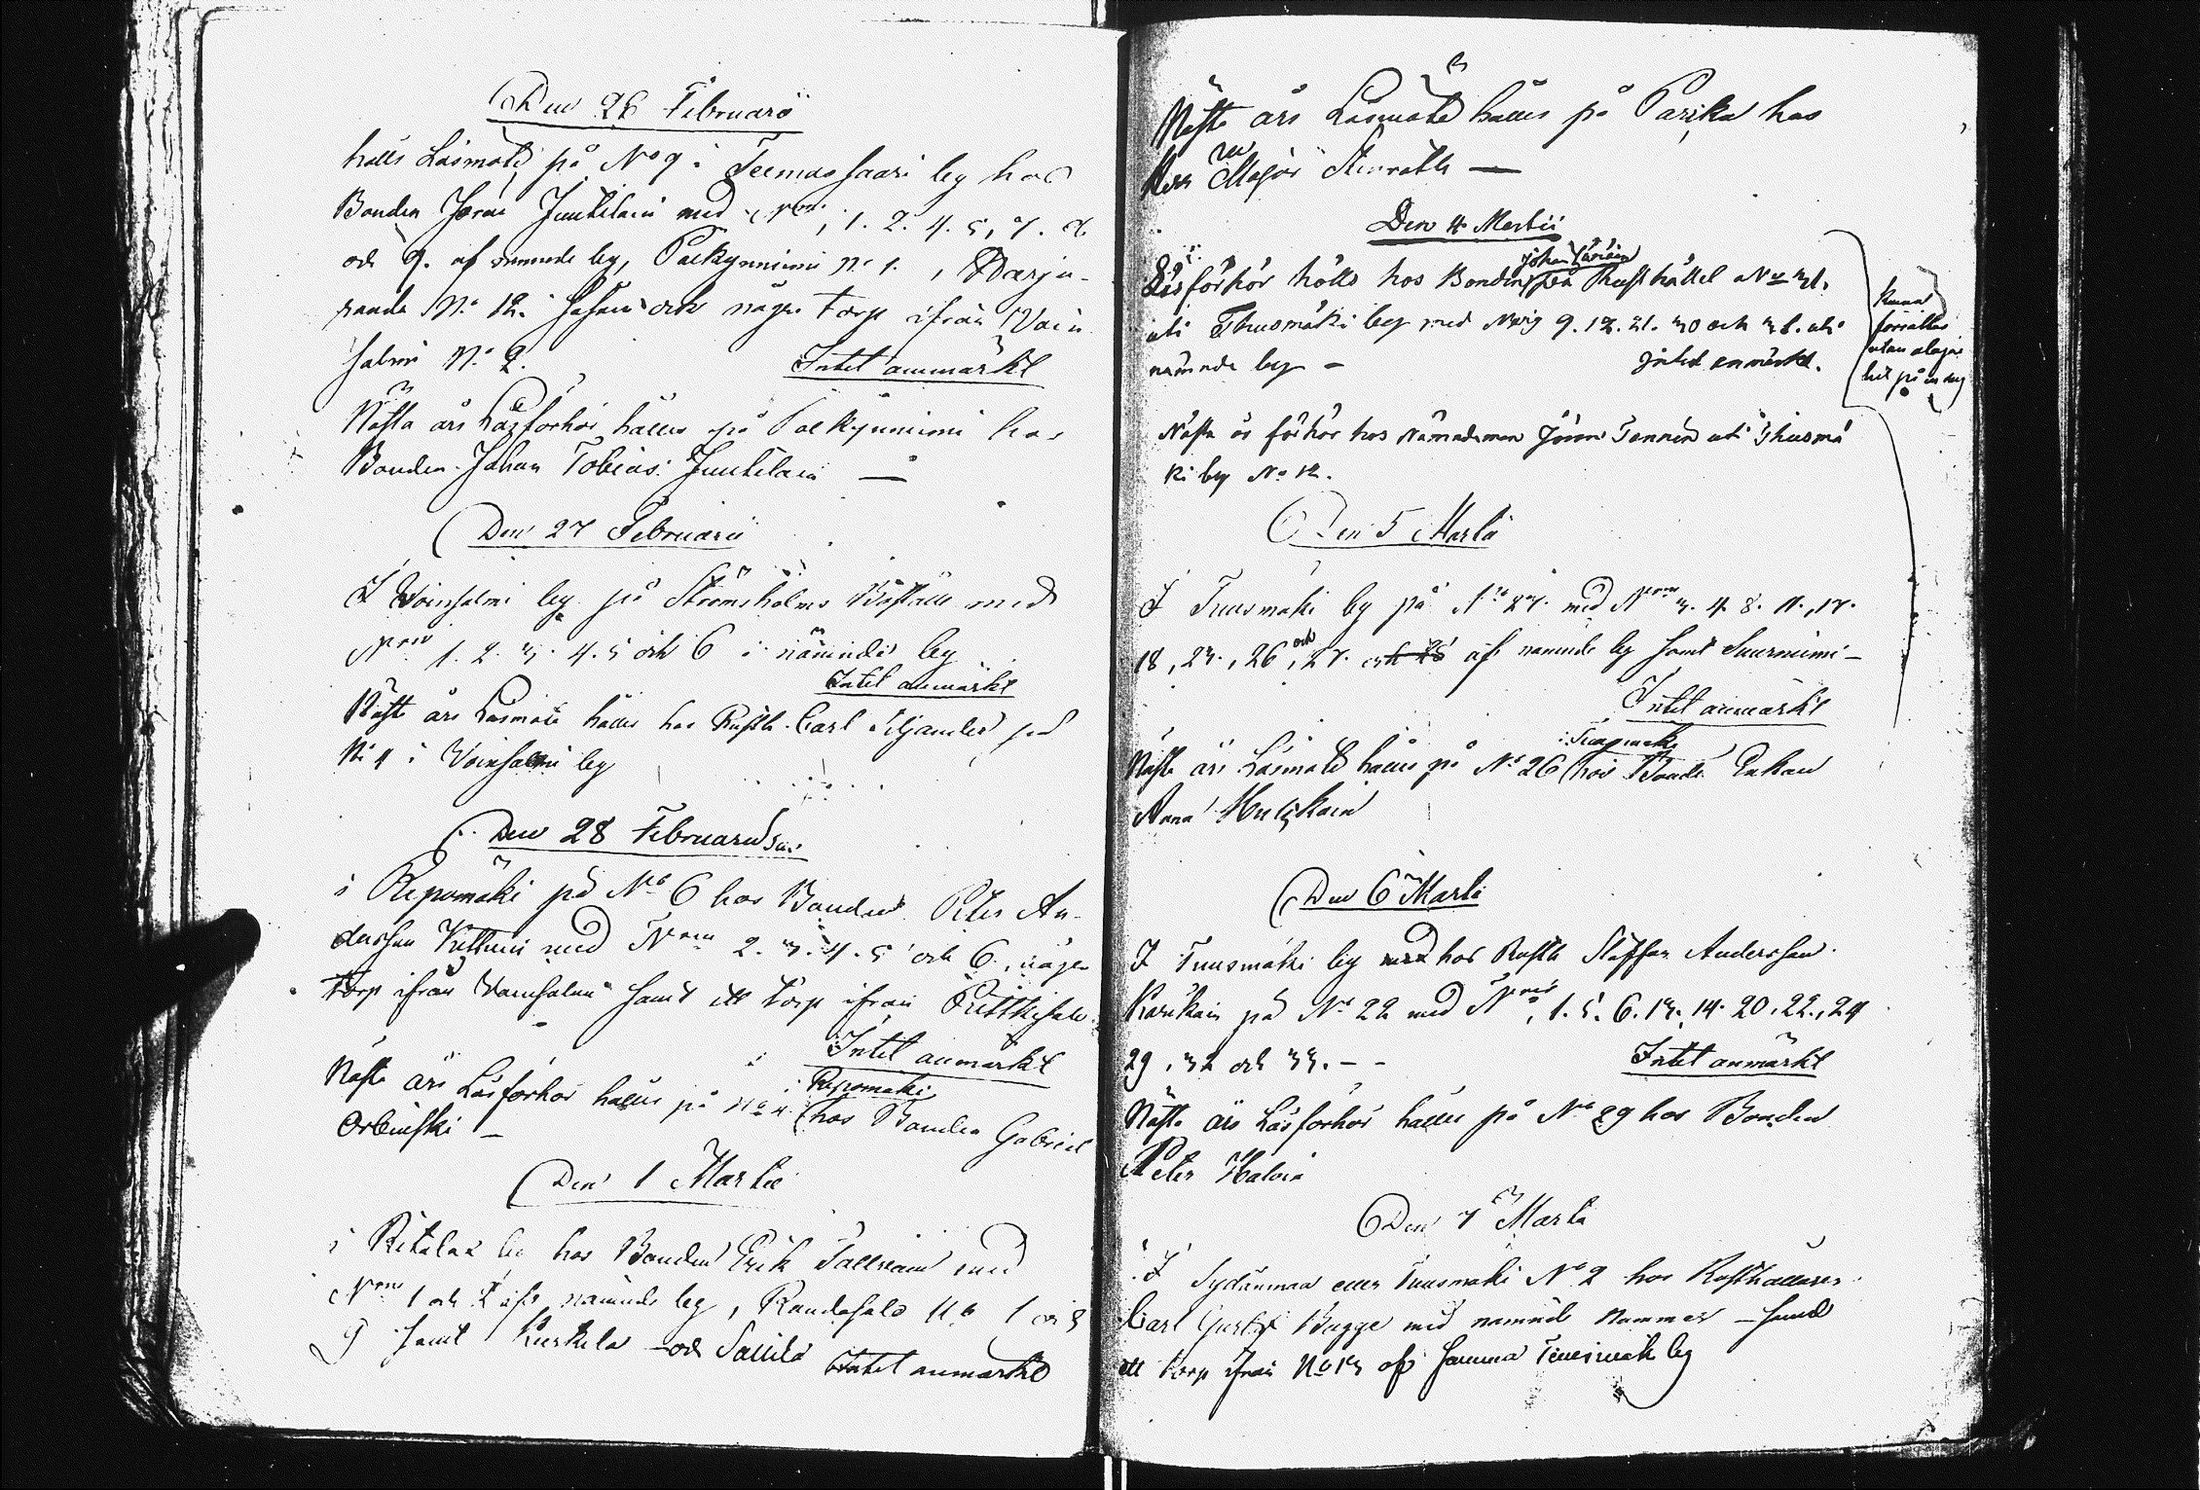 Den 26 Februarii
hålls Läsmöte på No 9 i Teemassaari by hos
Bonden Jöran Juutilain med Nris, 1. 2. 4. 5, 7. 8.
och 9. af nämnde by, Paekynnimi No 1.,
randa No 12. och några torp ifrån Vain
salmi No 2. Intet anmärkt
Nästa års Läseförhör hålles på Paekynnimi hos
Bonden Johan Tobias Juutilain —
Den 27 Februarii
I Voinsalmi by på Strömsholms Boställe med
Nris 1. 2. 3. 4. 5 och 6 i nämnde by
Intet anmärkt
Näste års Läsmöte hålles hos Rusth. Carl Siljander på
No 4 i Voinsalmi by
Den 28 Februarii
i Repomäki på No 6 hos Bonden Peter An-
dersson med Nris 2. 3. 4. 5 och 6, några
torp ifrån Vainsalmi samt ett torp ifrån
Intet anmärkt
Näste års Läseförhör hålles på No 4 i Repomäki hos Bonden Gabriel
Orbinski —
Den 1 Martii
i Ritalax by hos Bonden Erik Pallviain med
Nris 1 och 2 af nämnde by, Randasalo No 1 och
9 samt Kurkela och Savila Intet anmärkt
Näste års Läsmöte hålles på Parika hos
Herr Major Amrath —
Den 4 Martii
Läsförhör hölls hos Bonden Johan på Rusthållet No 31.
uti Thusmäki by med Nris 9. 12. 21. 30 och 36. uti
nämnde by – Intet anmärkt.
Kunna
förrättas
utan olägen
het på en dag
Nästa år förhör hos Nämndeman Jöran Tennin uti Thusmä
ki by No 12.
Den 5 Martii
I Tuusmäki by på No 27. med Nris 3. 4. 8. 11., 17.
18, 23., 26, och 27. och 28 af nämnde by samt Suurniemi –
Intet anmärkt
Näste års Läsmöte hålles på No 26 i Tuusmäki hos Bonde Enkan
Anna
Den 6 Martii
I Tuusmäki by med hos Rusth Staffan Andersson
Karikain på No 22 med Nris, 1. 5. 6. 13. 14. 20. 22., 24
29, 32 och 33. – – Intet anmärkt
Näste års Läsförhör hålles på No 29 hos Bonden
Peter Halvin
Den 7 Martii
I Sydänmaa eller Tuusmäki No 2 hos Rusthållaren
Carl Gustaf Bugge med nämnde Nummer – samt
ett torp ifrån No 13 af samma Tuusmäki by